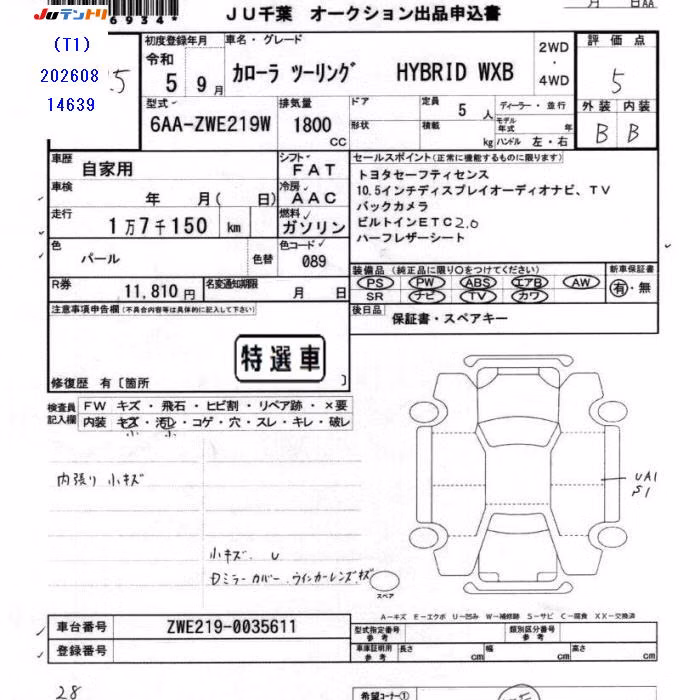 JUテントリ
6934★
JU千葉 オークション出品申込書
月 日AA
(T1)
202608
14639
5
初度登録年月
令和
5 9月
車名・グレード
カローラ ツーリング HYBRID WXB
2WD
・
4WD
評価点
5
外装 内装
B B
型式
6AA-ZWE219W
排気量
1800
CC
ドア
形状
定員 5 人
積載 kg
ディーラー・並行
モデル年式 年
ハンドル 左・右
車歴
自家用
シフト
FAT
車検 年 月( 日)
冷房
AAC
走行 1万7千150 km
燃料
ガソリン
色 パール
色替
色コード
089
R券 11,810円
名変通知期限 月 日
セールスポイント(正常に機能するものに限ります)
トヨタセーフティセンス
10.5インチディスプレイオーディオナビ、TV
バックカメラ
ビルトインETC2.0
ハーフレザーシート
装備品 (純正品に限り○をつけてください)
PS PW ABS エアB AW
SR ナビ TV カワ
新車保証書
有・無
後日品 保証書・スペアキー
注意事項申告欄(不具合内容等は具体的に記入して下さい)
特選車
修復歴 有〔箇所 〕
検査員記入欄
FW キズ・飛石・ヒビ割・リペア跡・×要
内装 キズ・汚レ・コゲ・穴・スレ・キレ・破レ
小 小
内張り 小キズ
UA1
S1
小キズ. U
Dミラーカバー.ウインカーレンズ.キズ
スペア
A-キズ E-エクボ U-凹み W-補修跡 S-サビ C-腐食 XX-交換済
車台番号 ZWE219-0035611
登録番号
型式指定番号 参考
類別区分番号 参考
車庫証明用 参考
長さ cm 幅 cm 高さ cm
28
希望コーナー①